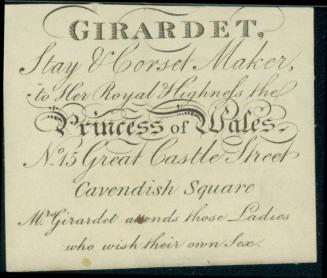 GIRARDET,
Stay & Corset Maker,
to Her Royal Highneſs the
Princess of Wales.
No. 15 Great Castle Street
Cavendish Square
Mrs. Girardet attends those Ladies
who wish their own Sex.